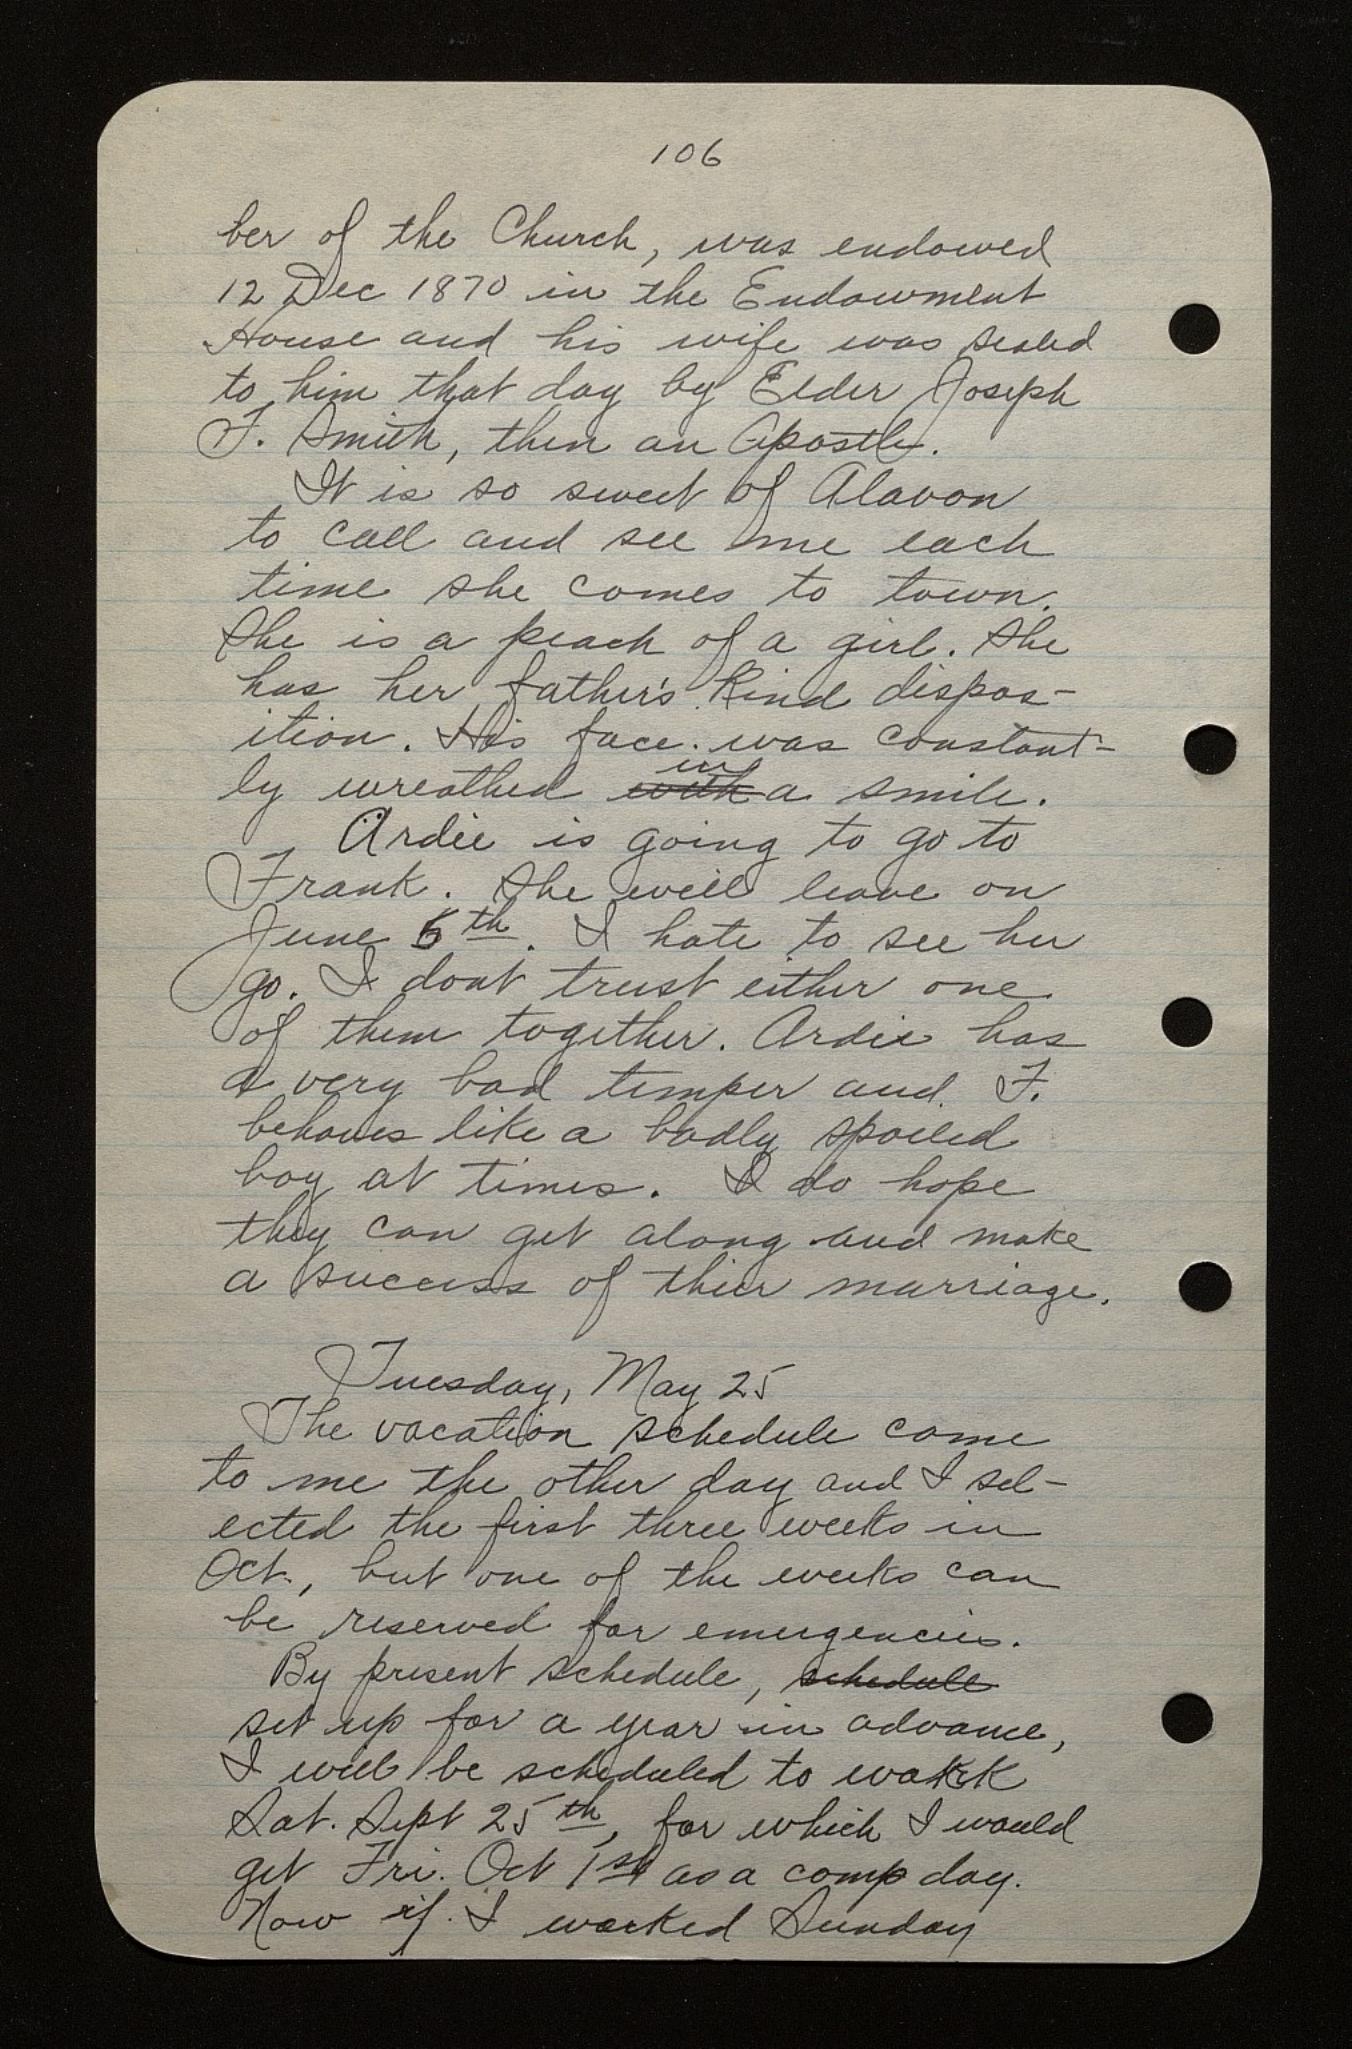 106
ber of the Church, was endowed
12 Dec 1870 in the Endowment
House and his wife was sealed
to him that day by Elder Joseph
F. Smith, then an Apostle.
It is so sweet of Alavon
to call and see me each
time she comes to town.
She is a peach of a girl. She
has her father's kind dispos-
ition. His face was constant-
ly wreathed ~~with~~ in a smile.
Ardie is going to go to
Frank. She will leave on
June 6th. I hate to see her
go. I dont trust either one
of them together. Ardie has
a very bad temper and F.
behaves like a badly spoiled
boy at times. I do hope
they can get along and make
a success of thier marriage.
Tuesday, May 25
The vacation schedule came
to me the other day and I sel-
ected the first three weeks in
Oct., but one of the weeks can
be reserved for emergencies.
By present schedule, ~~schedule~~
set up for a year in advance,
I will be scheduled to work
Sat. Sept 25th, for which I would
get Fri. Oct 1st as a comp day.
Now if I worked Sunday